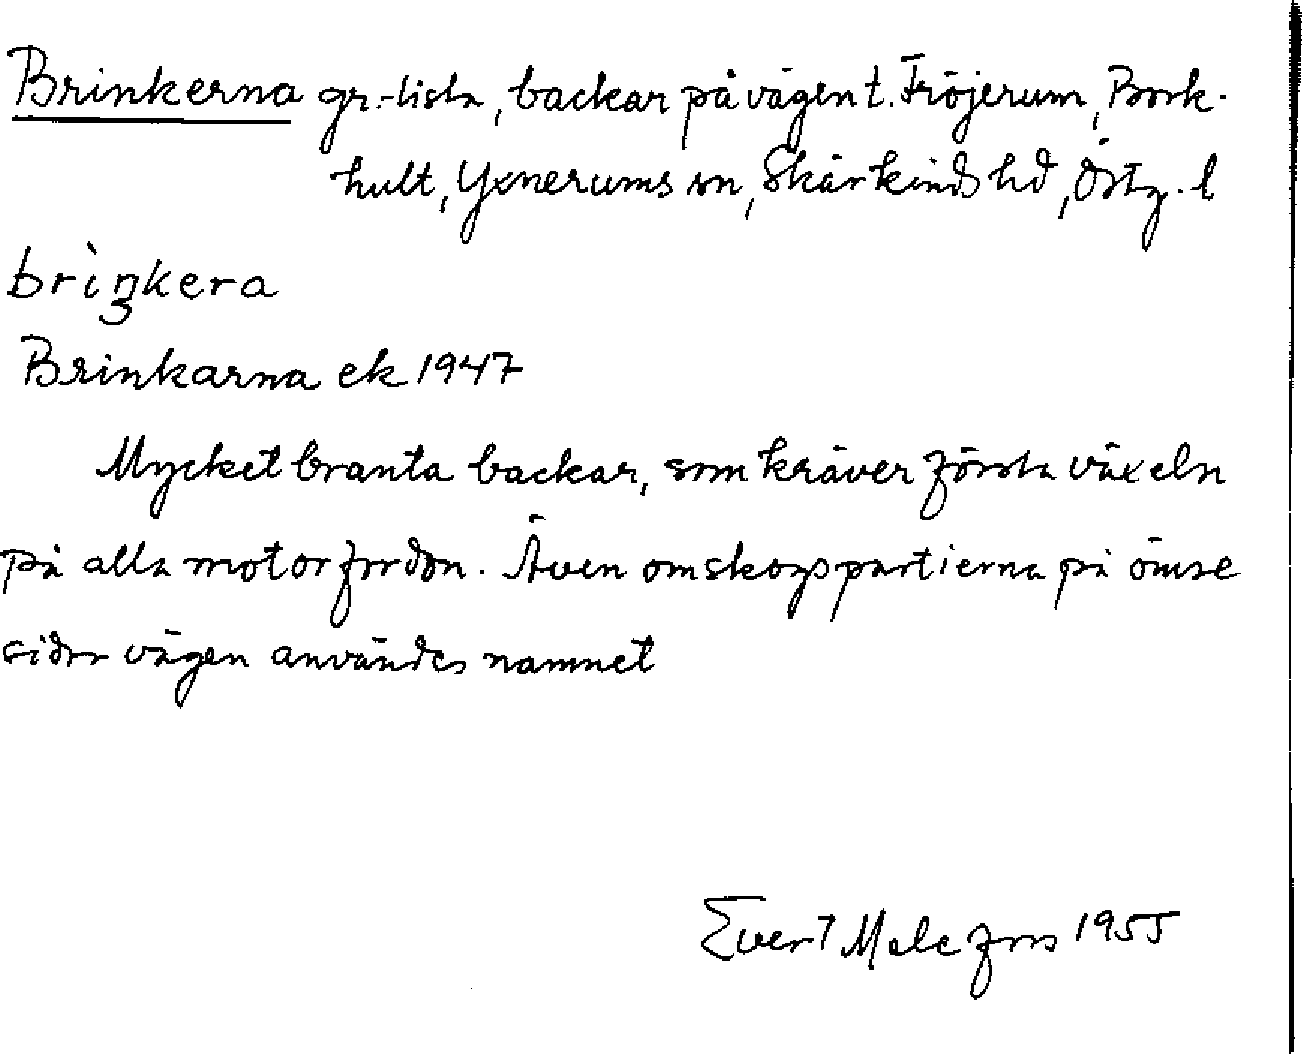 Brinkerna gr.-lista, backar på vägen t. Fröjerum, Bork-
hult, Yxnerums sn, Skärkinds hd, Östg. l
brìŋkera
Brinkarna ek 1947
Mycket branta backar, som kräver första växeln
på alla motorfordon. Även om skogspartierna på ömse
sidor vägen användes namnet
Evert Melefors 1955